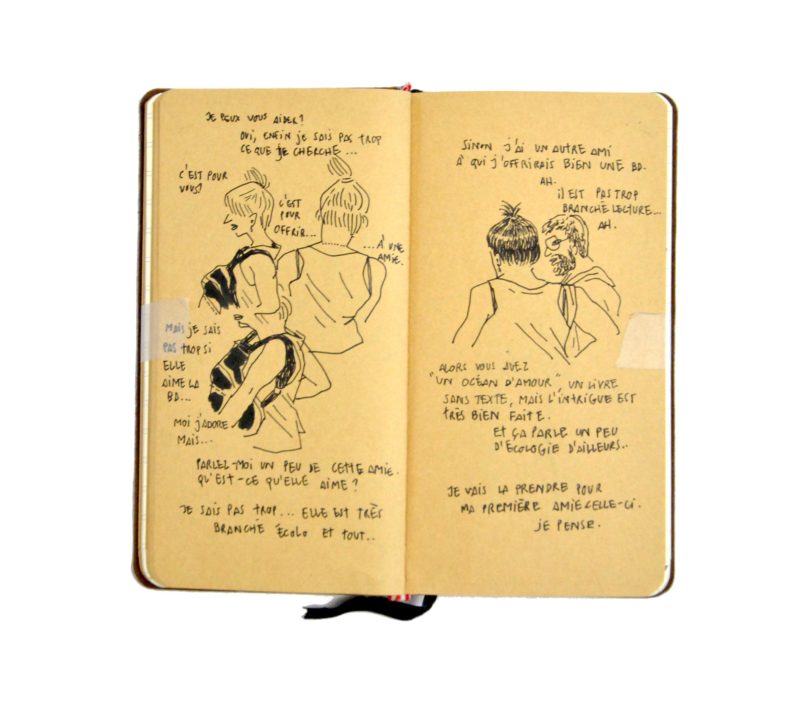 JE PEUX VOUS AIDER?
OUI, ENFIN JE SAIS PAS TROP
CE QUE JE CHERCHE...
C'EST POUR
VOUS?
C'EST
POUR
OFFRIR...
...À UNE
AMIE.
MAIS JE SAIS
PAS TROP SI
ELLE
AIME LA
BD...
MOI J'ADORE
MAIS...
PARLEZ-MOI UN PEU DE CETTE AMIE.
QU'EST-CE QU'ELLE AIME?
JE SAIS PAS TROP... ELLE EST TRÈS
BRANCHÉ ÉCOLO ET TOUT..
SINON J'AI UN AUTRE AMI
À QUI J'OFFRIRAIS BIEN UNE BD.
AH.
IL EST PAS TROP
BRANCHÉ LECTURE...
AH.
ALORS VOUS AVEZ
"UN OCÉAN D'AMOUR", UN LIVRE
SANS TEXTE, MAIS L'INTRIGUE EST
TRÈS BIEN FAITE.
ET ÇA PARLE UN PEU
D'ÉCOLOGIE D'AILLEURS..
JE VAIS LA PRENDRE POUR
MA PREMIÈRE AMIE CELLE-CI.
JE PENSE.